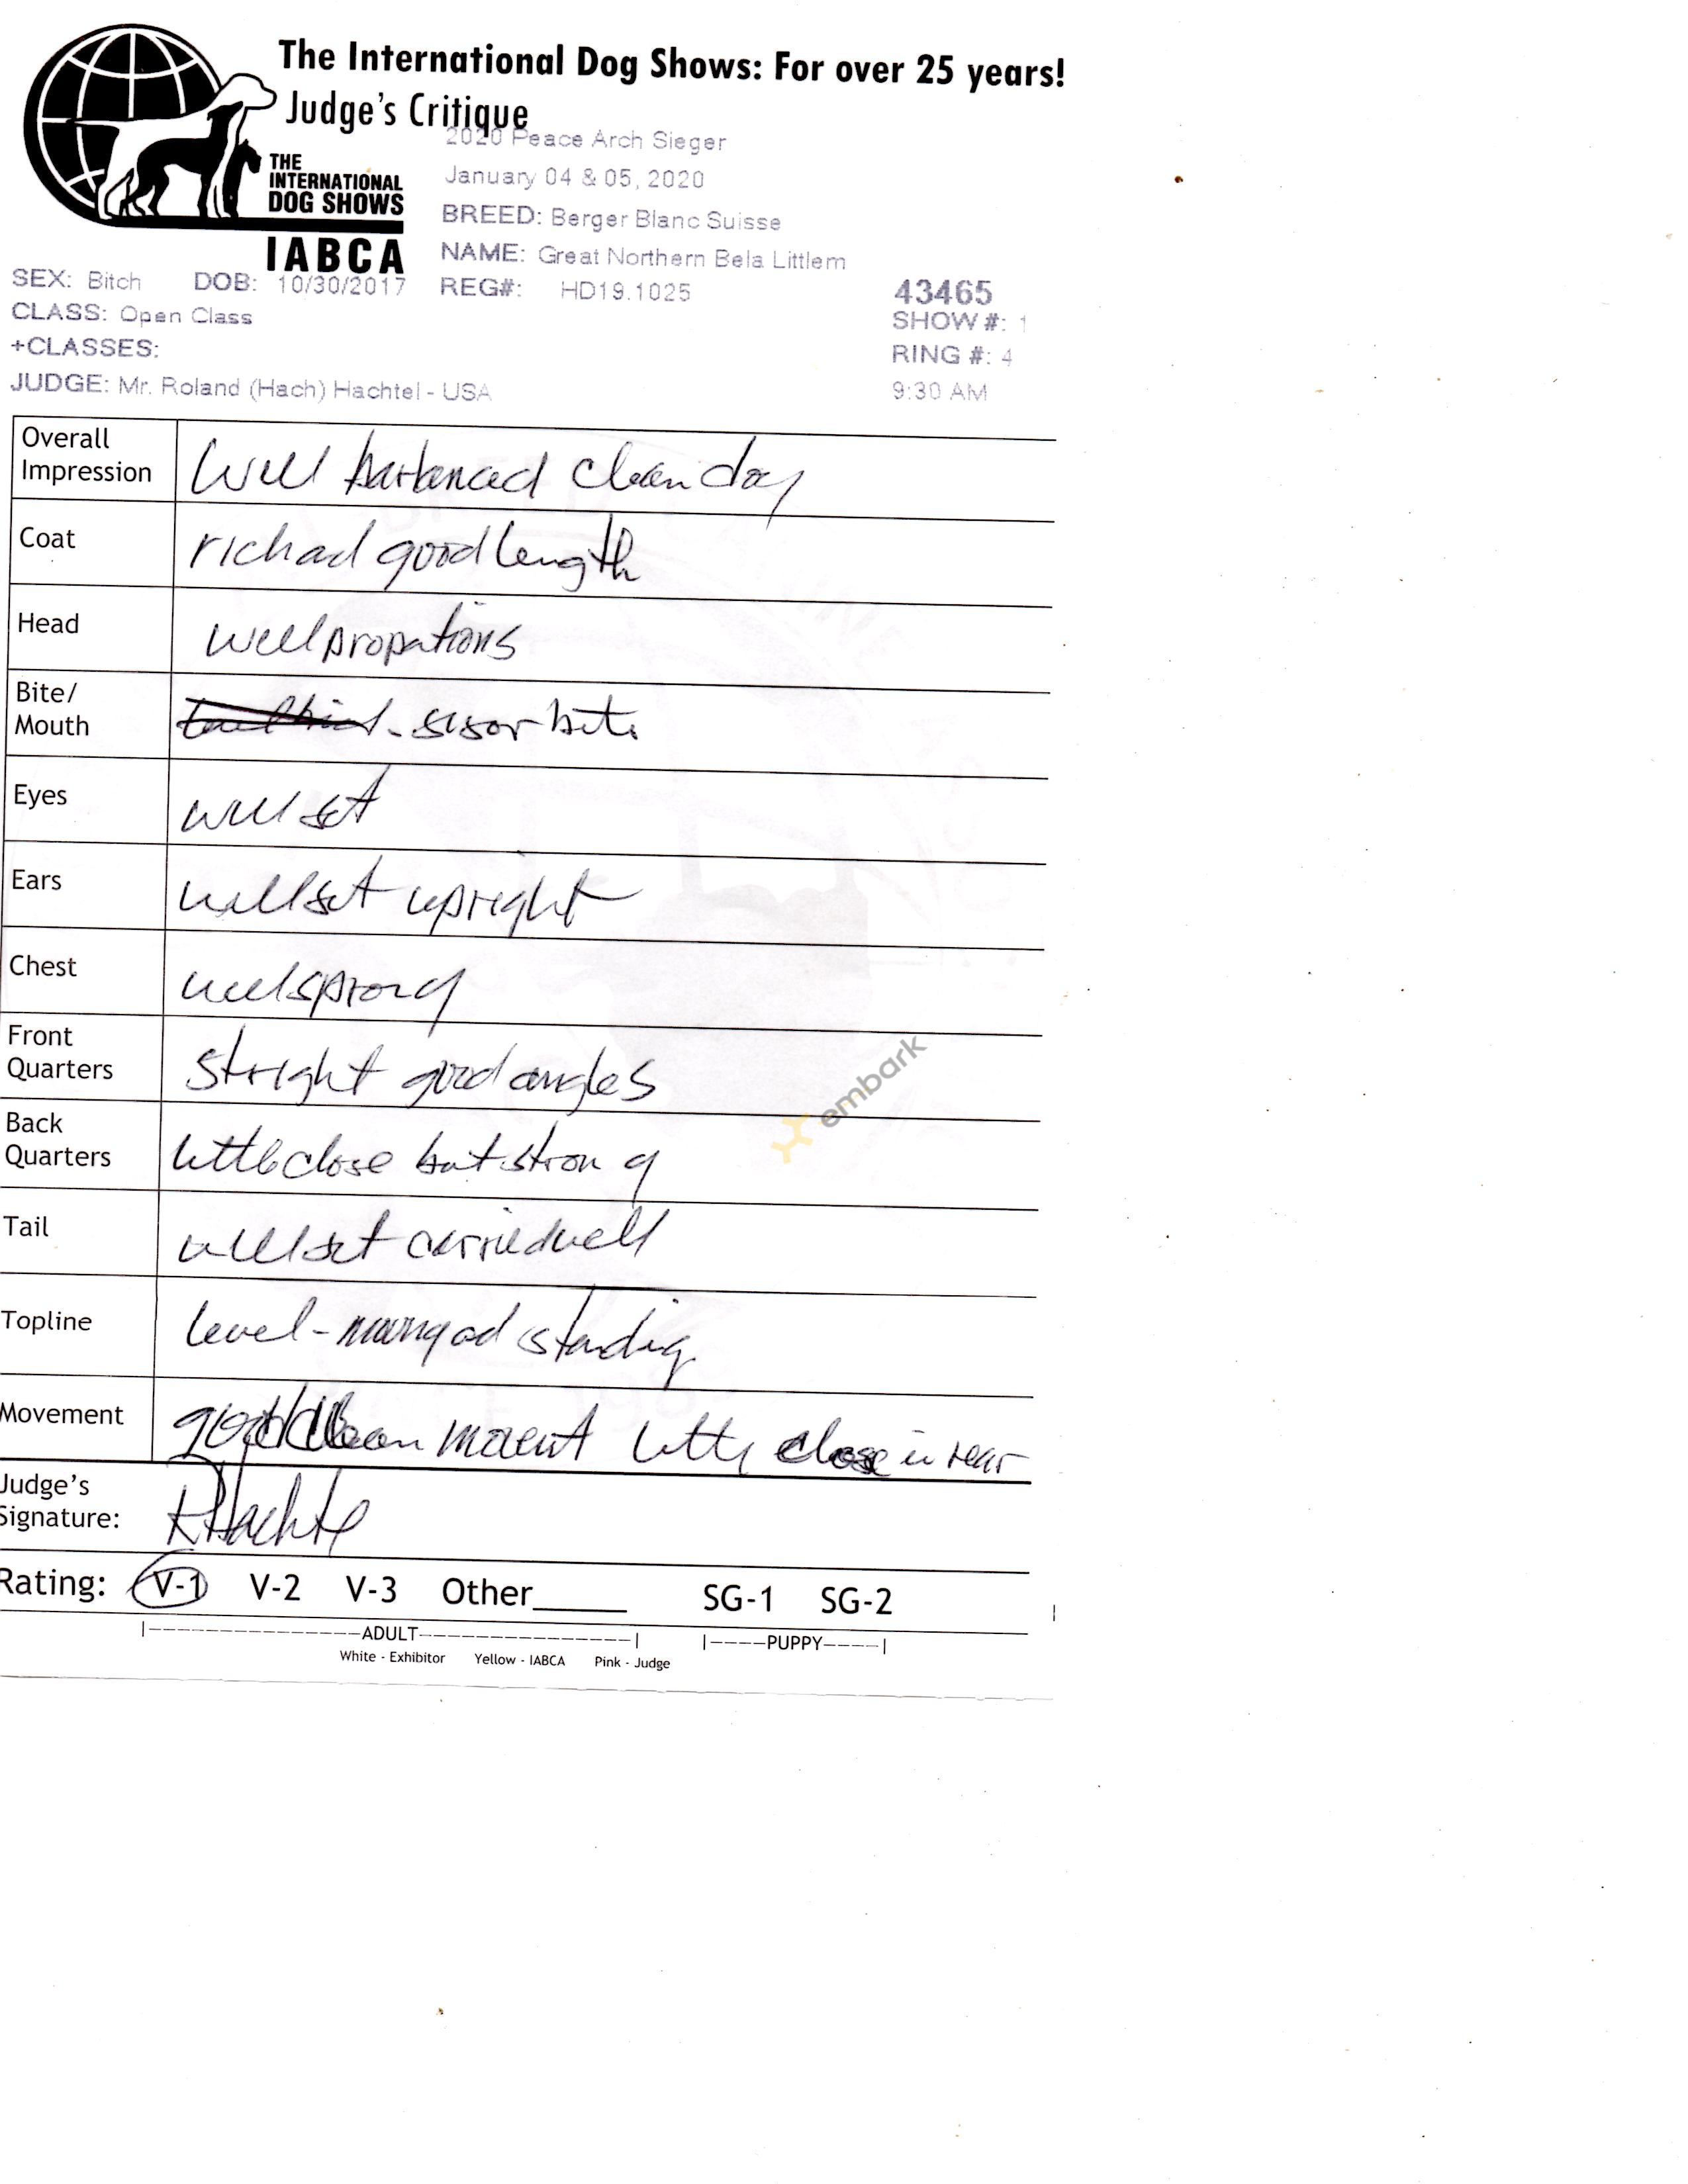 The International Dog Shows: For over 25 years!
Judge's Critique
2020 Peace Arch Sieger
THE
INTERNATIONAL
DOG SHOWS
IABCA
January 04 & 05, 2020
BREED: Berger Blanc Suisse
NAME: Great Northern Bela Littlem
SEX: Bitch DOB: 10/30/2017 REG#: HD19.1025 43465
CLASS: Open Class SHOW #: 1
+CLASSES: RING #: 4
JUDGE: Mr. Roland (Hach) Hachtel - USA 9:30 AM
Overall
Impression well balanced clean dog
Coat rich and good length
Head well propations
Bite/
Mouth sisor bite
Eyes well set
Ears well set upright
Chest well sprong
Front
Quarters stright good angles
Back
Quarters little close but strong
Tail well set carried well
Topline level - moving ad standig
Movement good clean close in rear
Judge's
Signature: RHachtel
Rating: V-1 V-2 V-3 Other_____ SG-1 SG-2
ADULT PUPPY
White - Exhibitor Yellow - IABCA Pink - Judge
embark